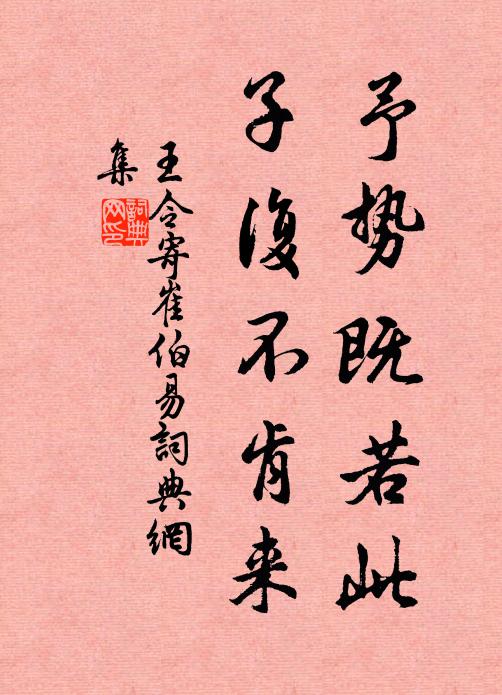 予势既若此
子復不肯来
王令寄崔伯易詞典網
集
詞典
网印